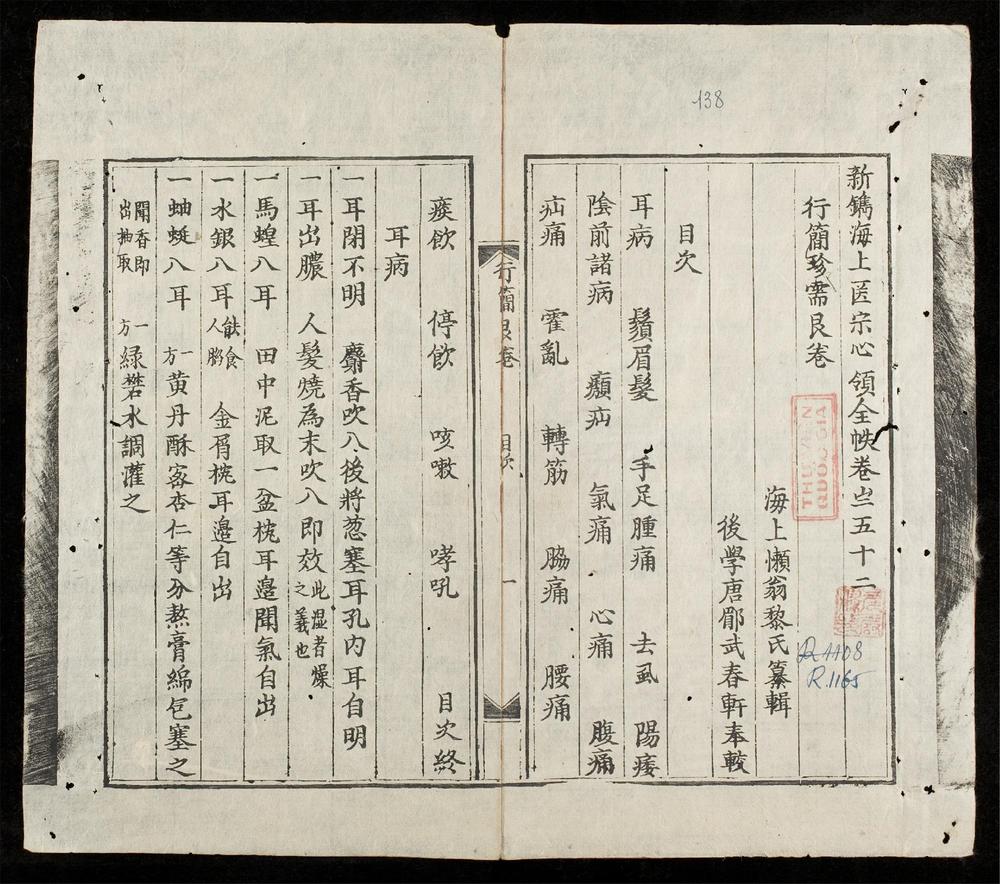 138
新鐫海上医宗心領全帙卷之五十二
行簡珍需艮卷
海上懶翁黎氏纂輯
後學唐郿武春軒奉較
目次
耳病 鬚眉髮 手足腫痛 去虱 陽痿
陰前諸病 㿗疝 氣痛 心痛 腹痛
疝痛 霍亂 轉筋 脇痛 腰痛
THƯ VIỆN
QUỐC GIA
R.1165
行簡艮卷 目次 一
痰飲 停飲 咳嗽 哮吼 目次終
耳病
一耳閉不明 麝香吹入後將葱塞耳孔内耳自明
一耳出膿 人髮燒為末吹入即效此湿者燥之義也
一馬蝗入耳 田中泥取一盆枕耳邉聞氣自出
一水銀入耳能食人腦 金屑枕耳邉自出
一蚰蜒入耳 一方黄丹酥蜜杏仁等分熬膏綿包塞之
聞香即出抽取 一方緑礬水調灌之